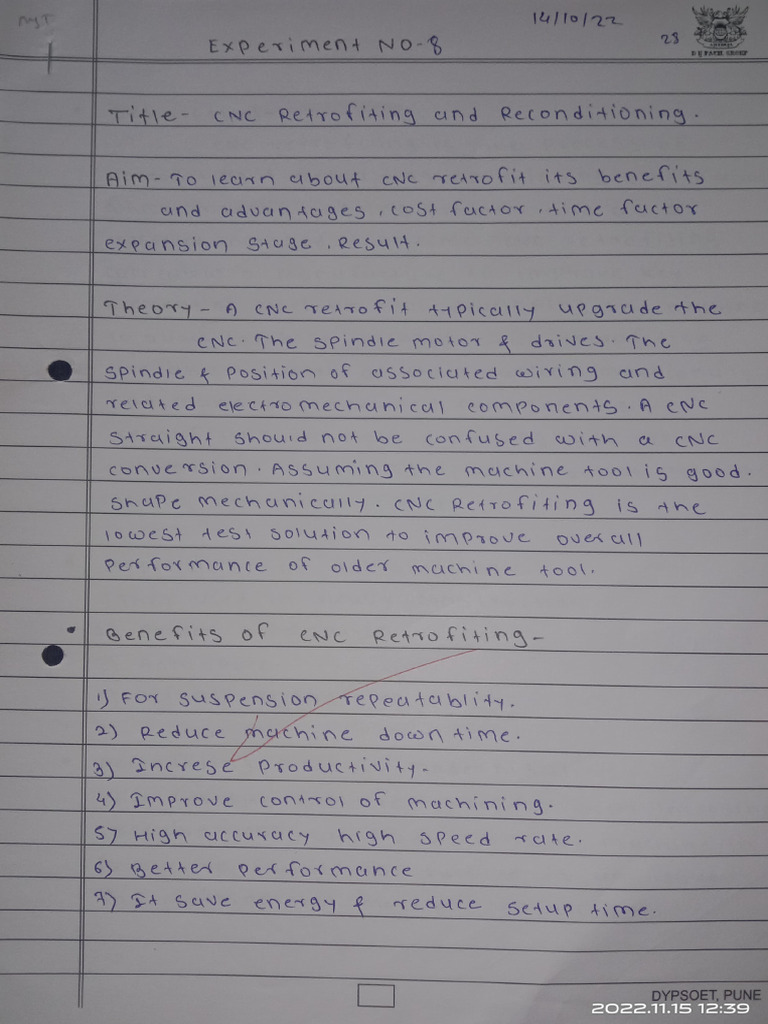 MYT
14/10/22
23
D Y PATIL GROUP
Experiment NO-8
Title- CNC Retrofiting and Reconditioning.
Aim- To learn about CNC retrofit its benefits
and advantages, cost factor, time factor
expansion stage. Result.
Theory- A CNC retrofit typically upgrade the
CNC. The spindle motor & drives. The
spindle & position of associated wiring and
related electromechanical components. A CNC
straight should not be confused with a CNC
conversion. Assuming the machine tool is good.
shape mechanically. CNC Retrofiting is the
lowest test solution to improve overall
performance of older machine tool.
Benefits of CNC Retrofiting-
1) For suspension repeatablity.
2) Reduce machine down time.
3) Increse productivity-
4) Improve control of machining.
5) High accuracy high speed rate.
6) Better performance
7) It save energy & reduce setup time.
DYPSOET, PUNE
2022.11.15 12:39